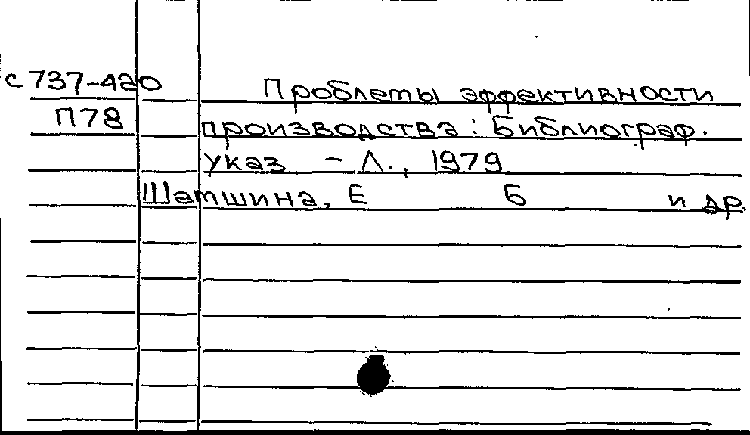 с737-420 Проблемы эффективности
П78 производства: Библиограф.
указ – Л., 1979
Шатшина, Е Б и др